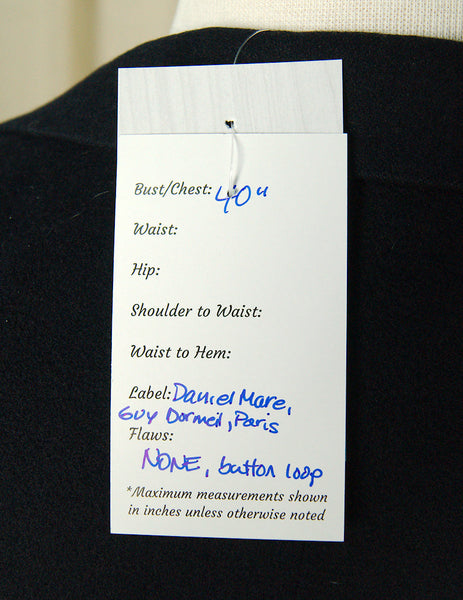 Bust/Chest: 40"
Waist:
Hip:
Shoulder to Waist:
Waist to Hem:
Label: Daniel Mare,
Guy Dormeil, Paris
Flaws:
NONE, button loop
*Maximum measurements shown
in inches unless otherwise noted